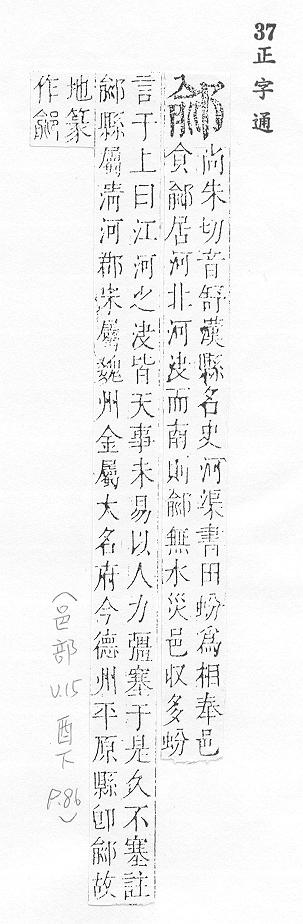 37 正字通
鄃
尚朱切音舒漢縣名史河渠書田蚡爲相奉邑
食鄃居河北河決而南則鄃無水災邑収多蚡
言于上曰江河之決皆天事未易以人力彊塞于是久不塞註
鄃縣屬清河郡宋屬魏州金屬大名府今德州平原縣卽鄃故
地篆
作
（邑部 V.15 酉下 P.86）